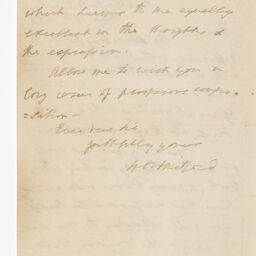 which seems to me equally
excellent in the thoughts &
the expression.
Allow me to wish you a
long course of prosperous compo=
=sition -
Ever dear Sir
faithfully yours
Mitford